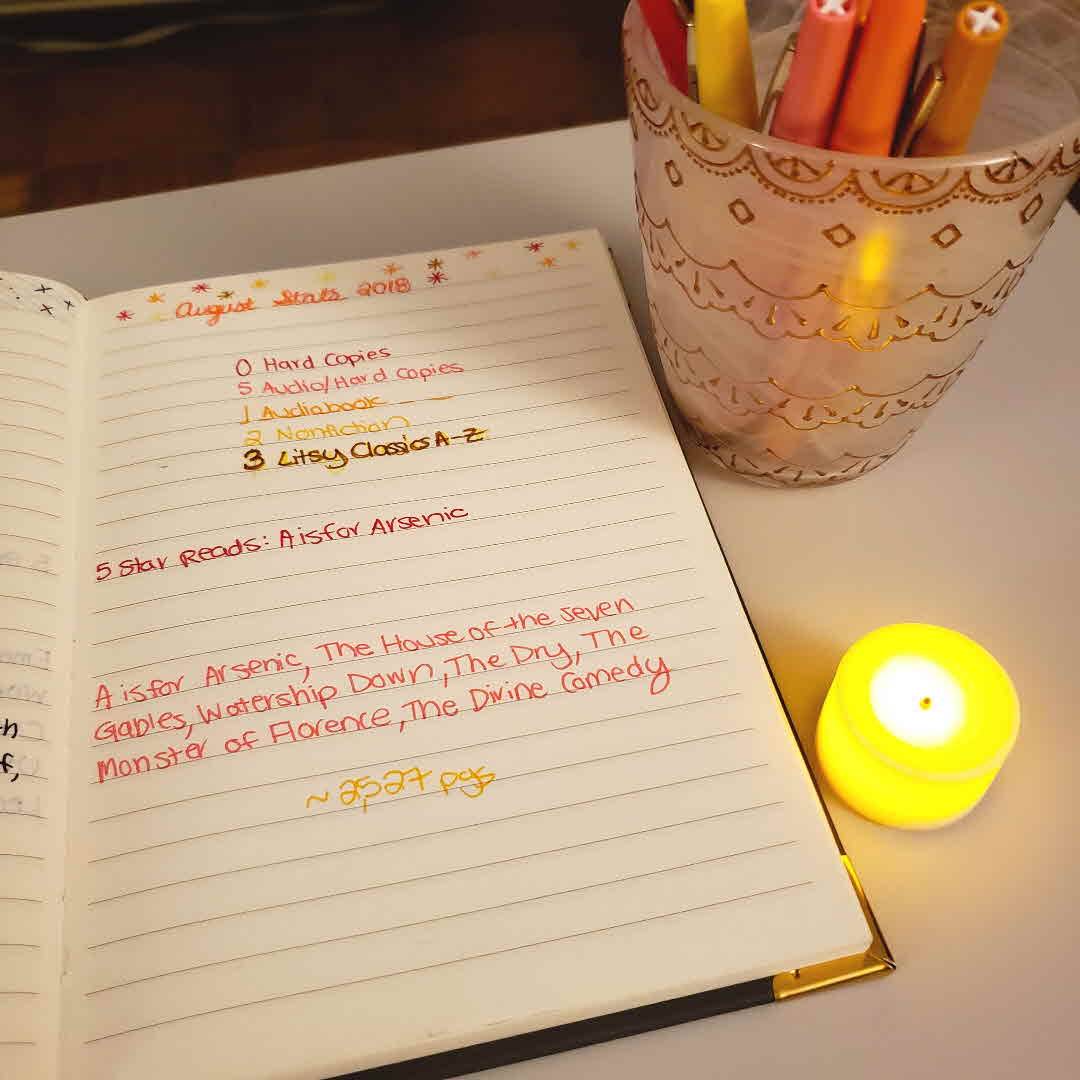 August Stats 2018
0 Hard Copies
5 Audio/Hard Copies
1 Audiobook
2 Nonfiction
3 Litsy Classics A-Z
5 Star Reads: A is for Arsenic
A is for Arsenic, The House of the Seven
Gables, Watership Down, The Dry, The
Monster of Florence, The Divine Comedy
~ 2,527 pgs